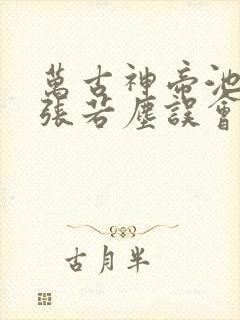 萬古神帝池
張若塵誤會
古月半